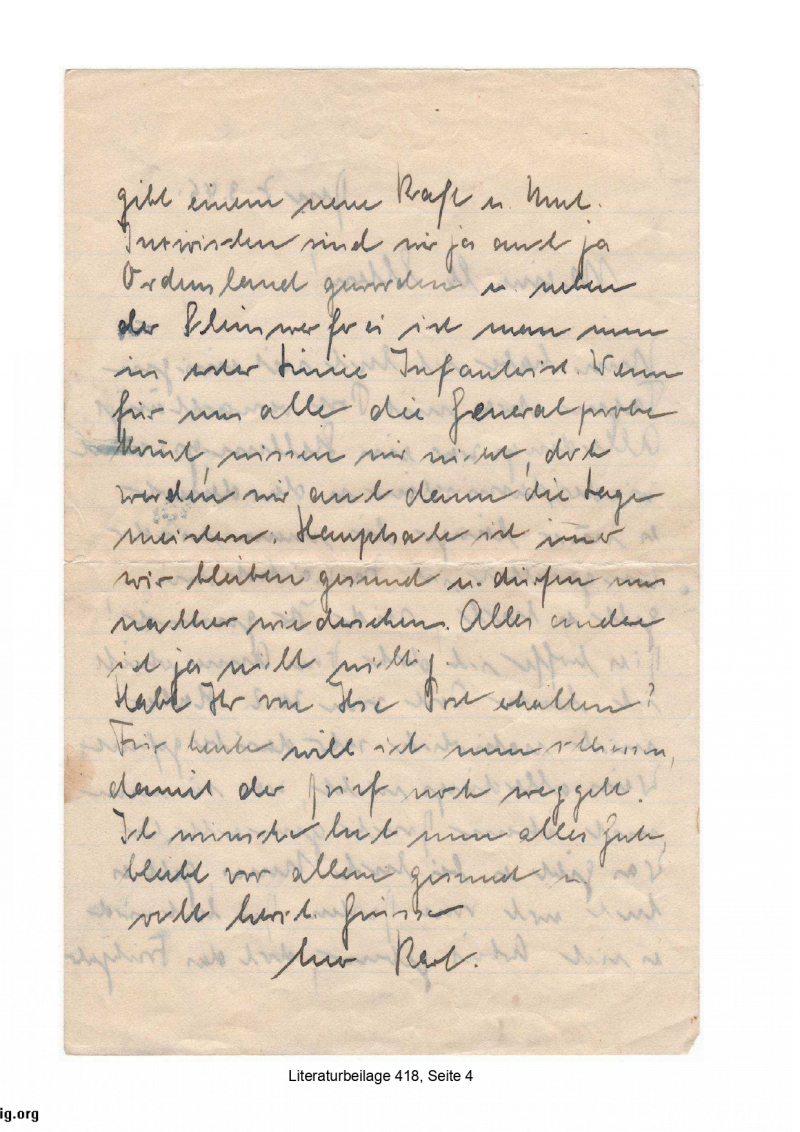 gibt einem neue Kraft u. Mut.
Inzwischen sind wir ja auch ja
Ordensland geworden u. neben
der ist man nun
in erster Linie Infanterist. Wenn
für uns alle die Generalprobe
kommt, wissen wir nicht, doch
werden wir auch dann die Lage
meistern. Hauptsache ist immer
wir bleiben gesund u. dürfen uns
nachher wiedersehen. Alles andere
ist ja nicht wichtig.
Habt Ihr von Ilse Post erhalten?
Für heute will ich nun schliessen,
damit der Brief noch weggeht.
Ich wünsche Euch nun alles Gute,
bleibt vor allem gesund u.
recht herzl. Grüsse
Euer
Literaturbeilage 418, Seite 4
ig.org